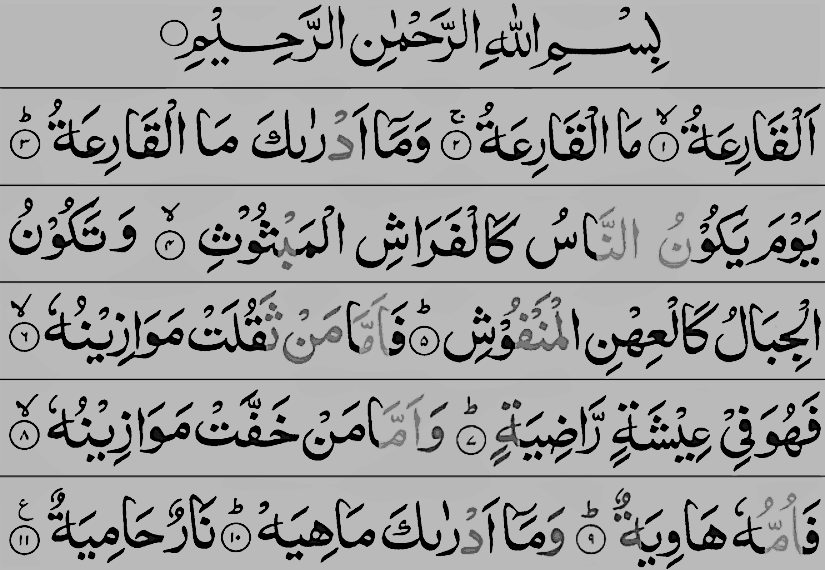 بِسْمِ اللهِ الرَّحْمٰنِ الرَّحِيْمِ
اَلْقَارِعَةُ ۙ﴿۱﴾ مَا الْقَارِعَةُ ۚ﴿۲﴾ وَمَاۤ اَدْرٰىكَ مَا الْقَارِعَةُ ؕ﴿۳﴾
يَوْمَ يَكُوْنُ النَّاسُ كَالْفَرَاشِ الْمَبْثُوْثِ ۙ﴿۴﴾ وَتَكُوْنُ
الْجِبَالُ كَالْعِهْنِ الْمَنْفُوْشِ ؕ﴿۵﴾ فَاَمَّا مَنْ ثَقُلَتْ مَوَازِيْنُهٗ ۙ﴿۶﴾
فَهُوَ فِيْ عِيْشَةٍ رَّاضِيَةٍ ؕ﴿۷﴾ وَاَمَّا مَنْ خَفَّتْ مَوَازِيْنُهٗ ۙ﴿۸﴾
فَاُمُّهٗ هَاوِيَةٌ ؕ﴿۹﴾ وَمَاۤ اَدْرٰىكَ مَا هِيَهْ ؕ﴿۱۰﴾ نَارٌ حَامِيَةٌ ﴿۱۱﴾ ع